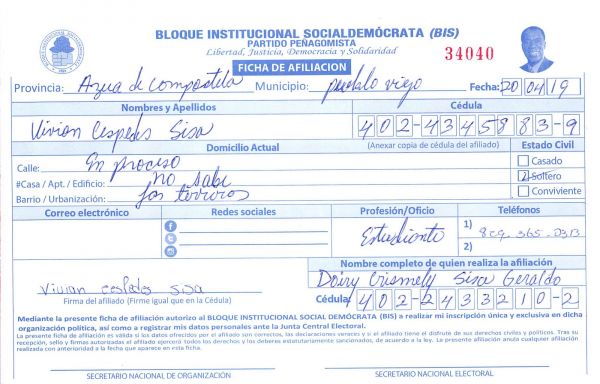 BLOQUE INSTITUCIONAL SOCIALDEMÓCRATA (BIS)
PARTIDO PEÑAGOMISTA
Libertad, Justicia, Democracia y Solidaridad
34040
FICHA DE AFILIACION
Provincia: Azua de compostela Municipio: pueblo viejo Fecha: 20 04 19
Nombres y Apellidos Cédula
Vivian Cespedes Sisa 402-4345883-9
Domicilio Actual (Anexar copia de cédula del afiliado) Estado Civil
Calle: En proceso Casado
#Casa / Apt. / Edificio: no sabe Soltero
Barrio / Urbanización: Los Conviviente
Correo electrónico Redes sociales Profesión/Oficio Teléfonos
Estudiante 1) 829-365-0313
2)
Nombre completo de quien realiza la afiliación
Vivian sisa Doiry Crismely Sisa Geraldo
Firma del afiliado (Firme igual que en la Cédula) Cédula: 402-2433210-2
Mediante la presente ficha de afiliación autorizo al BLOQUE INSTITUCIONAL SOCIAL DEMÓCRATA (BIS) a realizar mi inscripción única y exclusiva en dicha
organización política, así como a registrar mis datos personales ante la Junta Central Electoral.
La presente ficha de afiliación es valida si los datos ofrecidos por el afiliado son correctos, las declaraciones veraces y si el afiliado tiene el disfrute de sus derechos civiles y políticos. Tras su
recepción, sello y firmas autorizadas el afiliado ejercerá todos los derechos y los deberes estatutariamente sancionados, de acuerdo a la ley. La presente afiliación anula cualquier afiliación
realizada con anterioridad a la fecha que aparece en esta ficha.
SECRETARIO NACIONAL DE ORGANIZACIÓN SECRETARIO NACIONAL ELECTORAL